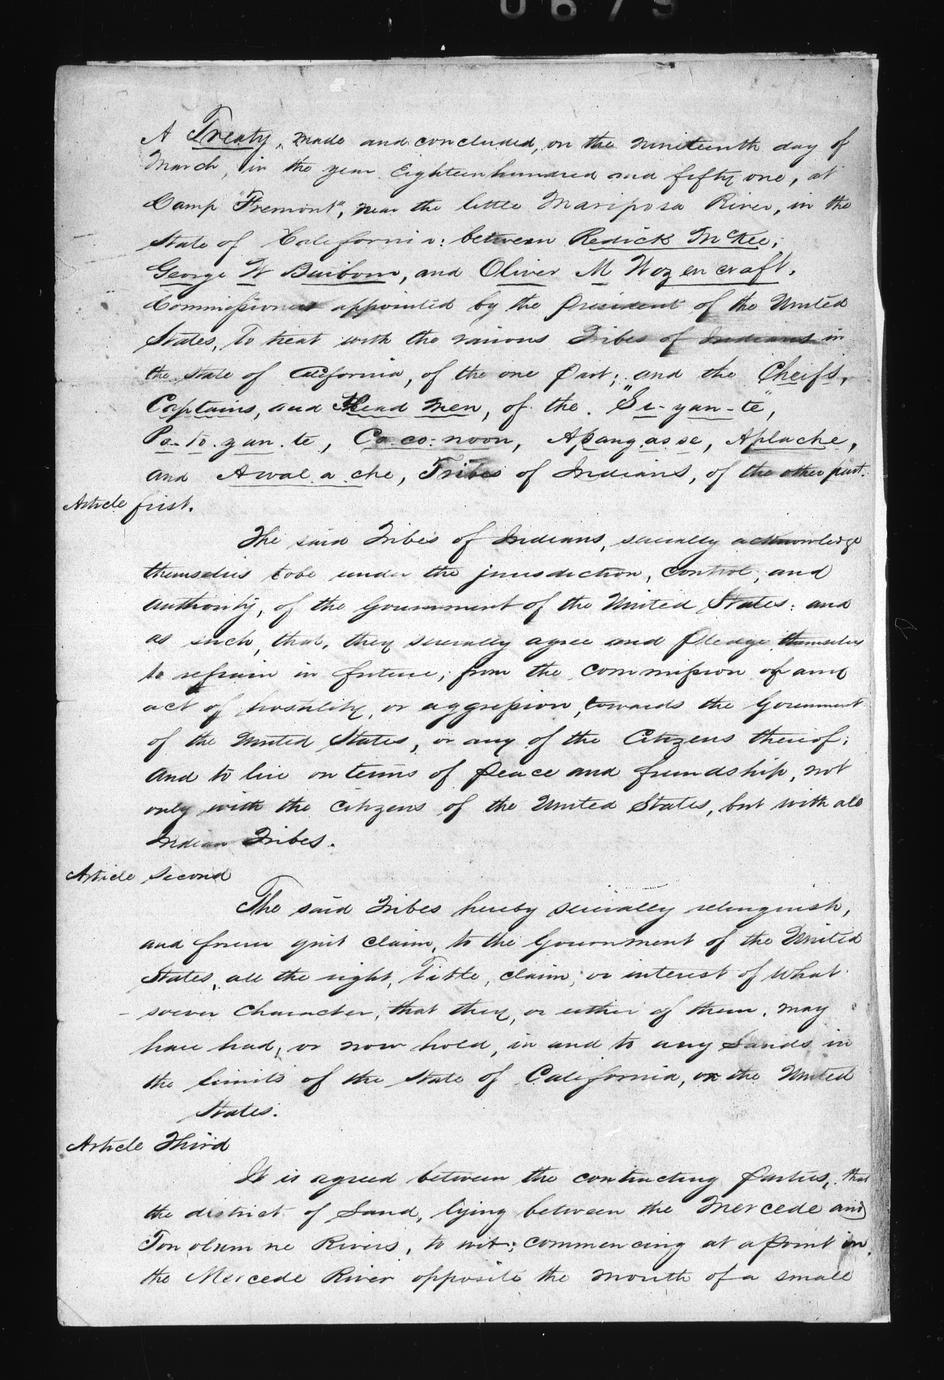 0673
A Treaty, made and concluded, on the nineteenth day of
March, in the year Eighteen hundred and fifty one, at
Camp "Fremont", near the little Mariposa River, in the
State of California: between Redick McKee,
George W Barbour, and Oliver M Wozencraft,
Commissioners appointed by the president of the United
States, To treat with the various Tribes of Indians in
the State of California, of the one Part; and the Cheifs,
Captains, and Head Men, of the "Si-yan-te",
Po-to-yan-te, Co-co-noon, Apangasse, Aplache,
and Awal a che, Tribes of Indians, of the other part.
Article first.
The said Tribes of Indians, severally acknowledge
themselves to be under the jurisdiction, control, and
authority, of the Government of the United States: and
as such, that, they severally agree and pledge themselves
to refrain in future, from the commission of any
act of hostility, or aggression, towards the Government
of the United States, or any of the Citizens thereof;
And to live on terms of peace and friendship, not
only with the citizens of the United States, but with all
Indian Tribes.
Article Second
The said Tribes hereby severally relinquish,
and forever quit claim, to the Government of the United
States, all the right, Title, claim, or interest of what-
soever Character, that they, or either of them, may
have had, or now hold, in and to any Lands in
the limits of the State of California, or the United
States.
Article Third
It is agreed between the contracting Parties, that
the district of Land, lying between the Mercede and
Tou olum ne Rivers, to wit; commencing at a Point on
the Mercede River opposite the mouth of a small